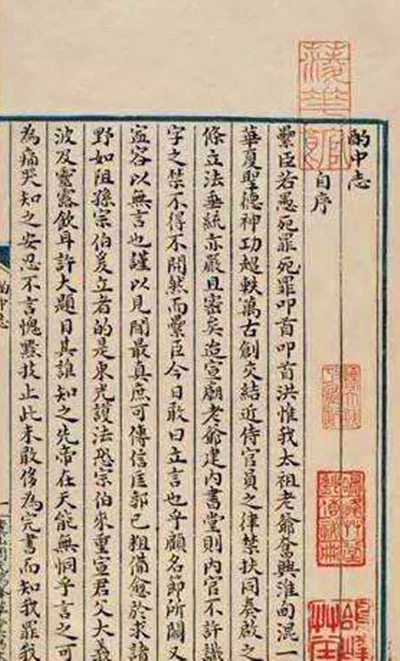 酌中志
自序
纍臣若愚死罪死罪叩首叩首洪惟我太祖老爺奮興淮甸混一
華夏聖德神功超軼萬古創交結近侍官員之律禁扶同奏啟之
條立法垂統亦嚴且密矣迨宣廟老爺建內書堂則內官不許識
字之禁不得不開然而纍臣今日敢曰立言也乎顧名節所關又
盍容以無言也謹以見聞最真庶可傳信匡郭已粗備愈於求諸
野如阻孫宗伯爰立者的是東光護法恐宗伯來重宣君父大義
波及靈露飲耳許大題目其誰知之先帝在天能無恫乎言之可
為痛哭知之安忍不言愧黔技止此未敢侈為完書而知我罪我
酌中志